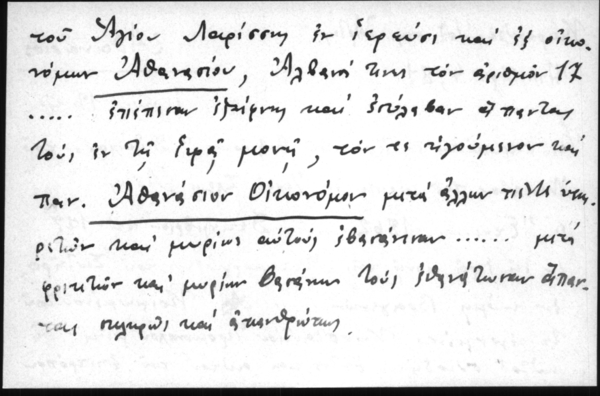 τοῦ Ἁγίου Λαρίσσης ἐν ἱερεῦσι καί ἐξ οἰκο-
νόμων Ἀθανασίου, Ἀλβανοί τινες τόν ἀριθμόν 17
..... ἐπέπεσαν ἐξαίφνης καί συνέλαβον ἅπαντας
τούς ἐν τῇ ἱερᾷ μονῇ, τόν τε ἡγούμενον καί
παν. Ἀθανάσιον Οἰκονόμον μετά ἄλλων πέντε ὑπη-
ρετῶν καί μυρίως αὐτούς ἐβασάνισαν ...... μετά
φρικτῶν καί μυρίων βασάνων τούς ἐθανάτωσαν ἅπαν-
τας σκληρῶς καί ἀπανθρώπως.